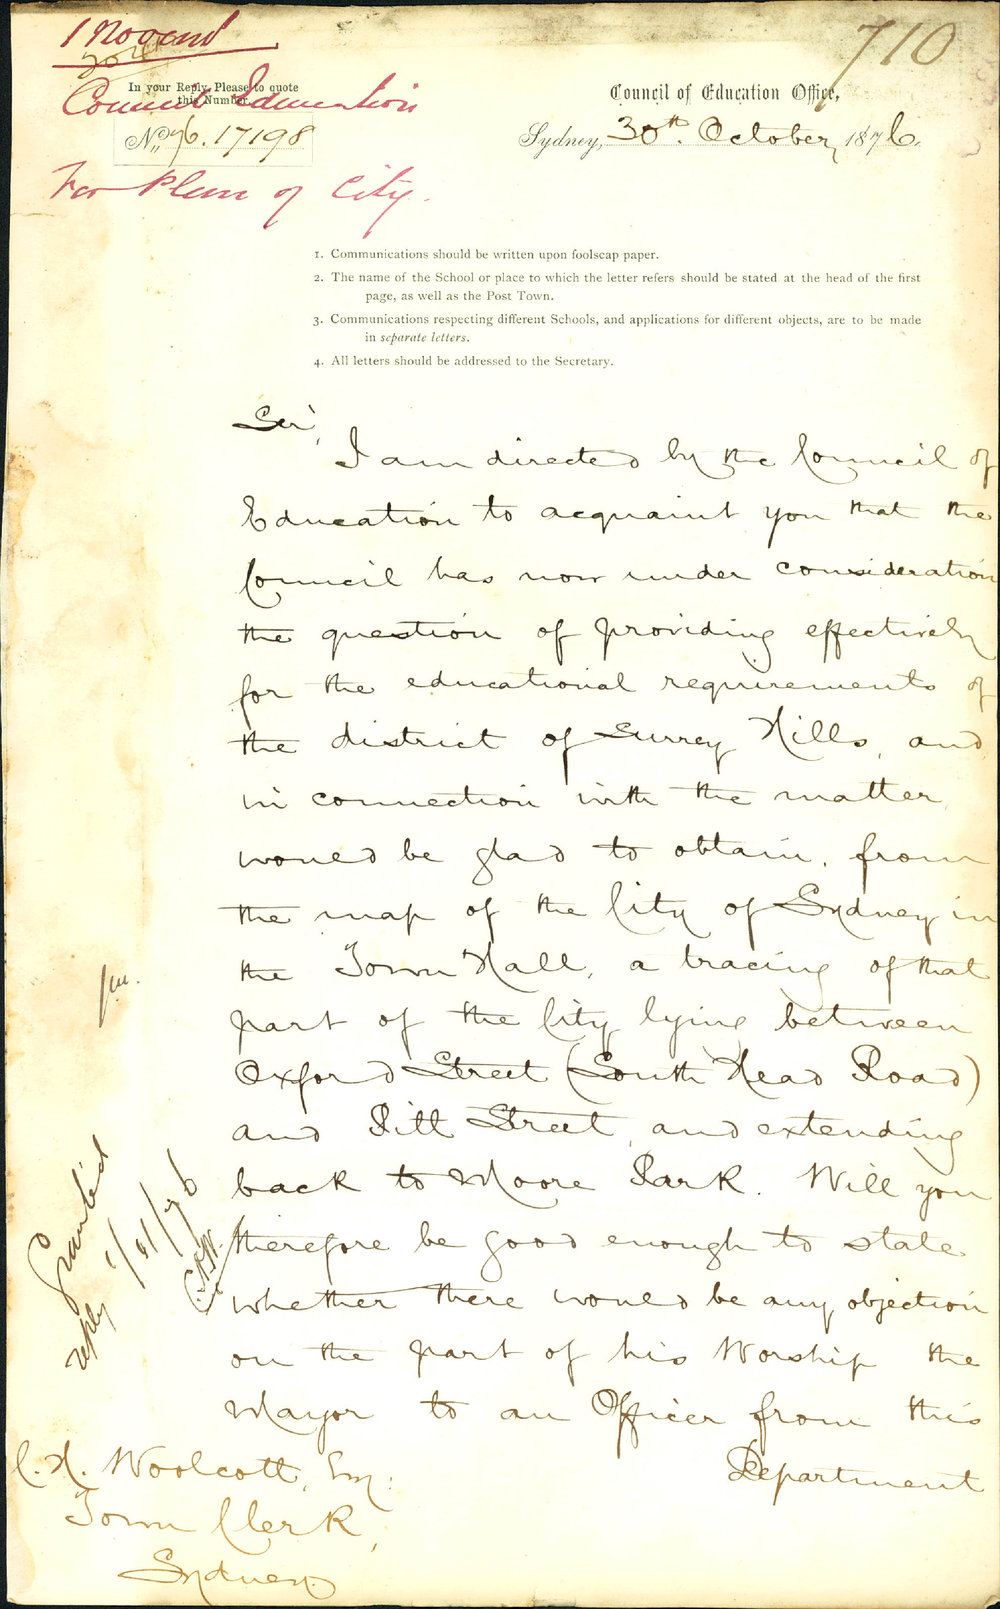 1 Novem
710
Council Education
In your Reply, Please to quote
this Number.
No. 76.17198
For Plan of City.
Council of Education Office,
Sydney, 30th October, 1876.
1. Communications should be written upon foolscap paper.
2. The name of the School or place to which the letter refers should be stated at the head of the first
page, as well as the Post Town.
3. Communications respecting different Schools, and applications for different objects, are to be made
in separate letters.
4. All letters should be addressed to the Secretary.
Sir,
I am directed by the Council of
Education to acquaint you that the
Council has now under consideration
the question of providing effectively
for the educational requirements of
the district of Surrey Hills, and,
in connection with the matter,
would be glad to obtain, from
the map of the City of Sydney in
the Town Hall, a tracing of that
part of the City lying between
Oxford Street (South Head Road)
and Pitt Street, and extending
back to Moore Park. Will you
therefore be good enough to state
whether there would be any objection
on the part of his Worship the
Mayor to an Officer from this
Department
C. H. Woolcott, Esq:
Town Clerk,
Sydney.
Granted
reply 1/11/76